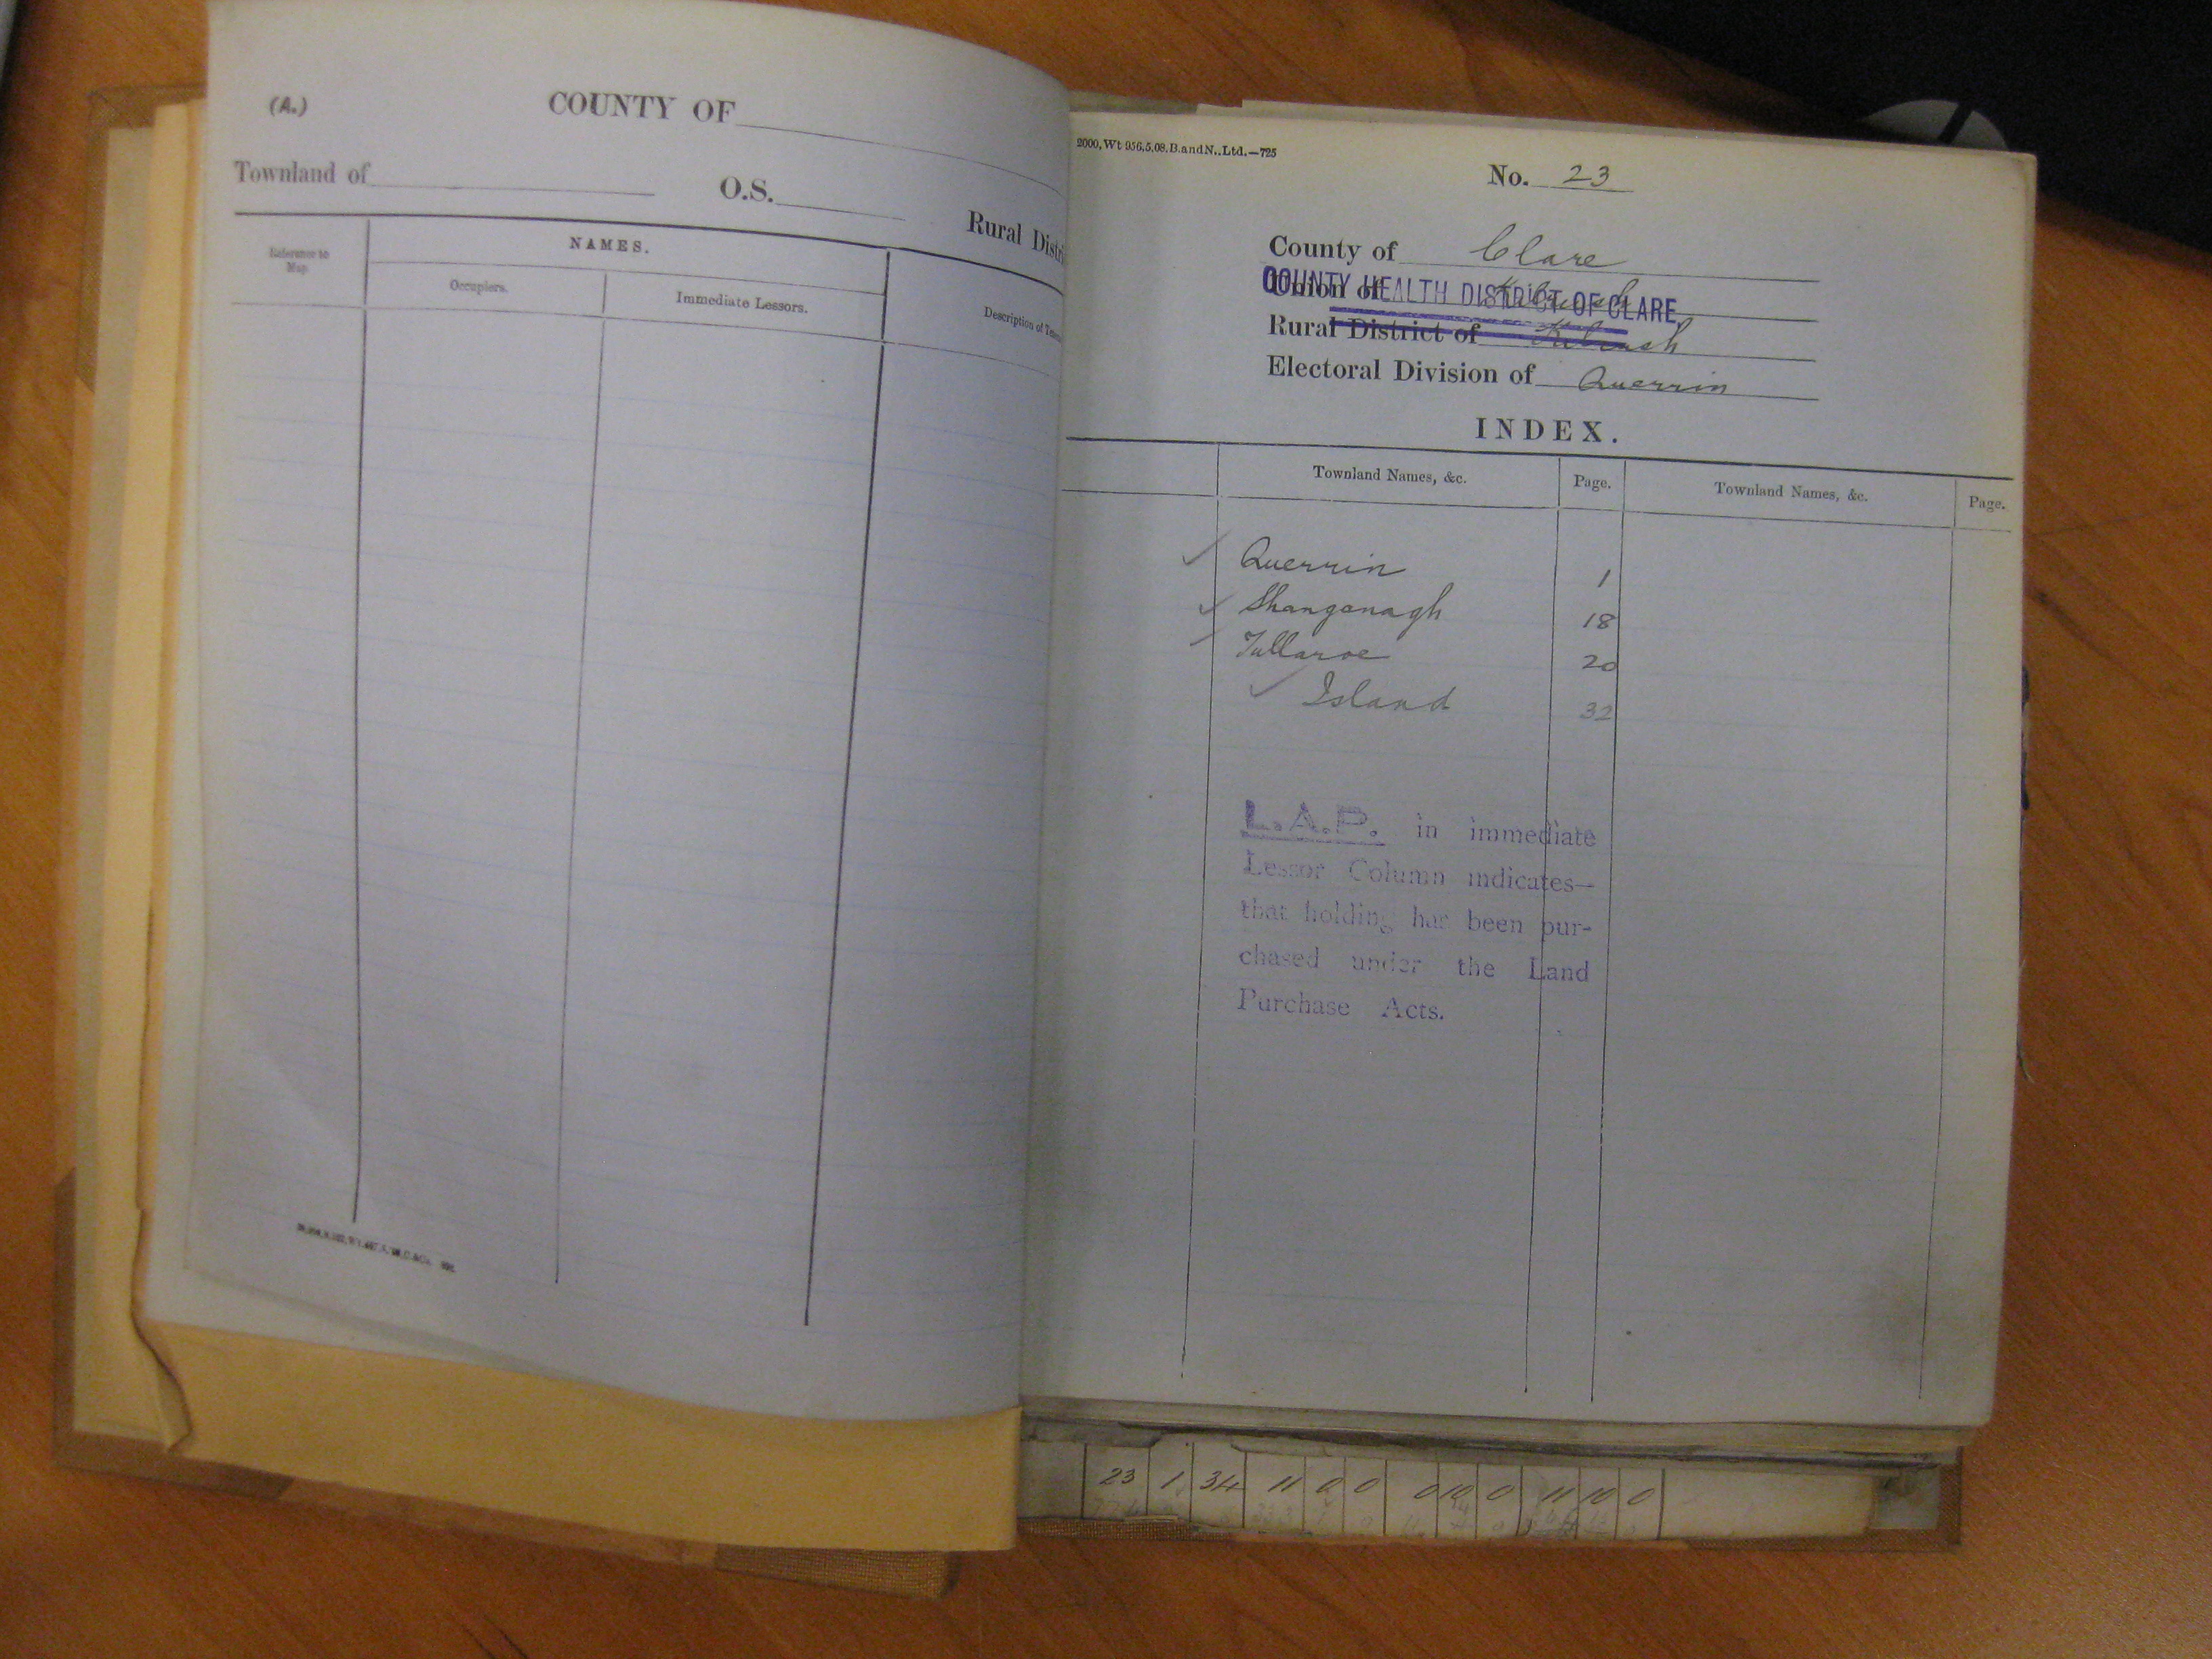 (A.)
COUNTY OF
Townland of
O.S.
Rural Distri
Reference to Map
NAMES.
Occupiers.
Immediate Lessors.
Description of Tene
2000,Wt 956,5,08,B.andN.,Ltd.—725
No. 23
County of Clare
Union of Kilrush
COUNTY HEALTH DISTRICT OF CLARE.
Rural District of Kilrush
Electoral Division of Querrin
INDEX.
Townland Names, &c. Page. Townland Names, &c. Page.
Querrin 1
Shanganagh 18
Tullaroe 20
Island 32
L.A.P. in immediate
Lessor Column indicates—
that holding has been pur-
chased under the Land
Purchase Acts.
23 1 34 11 0 0 0 10 0 11 10 0